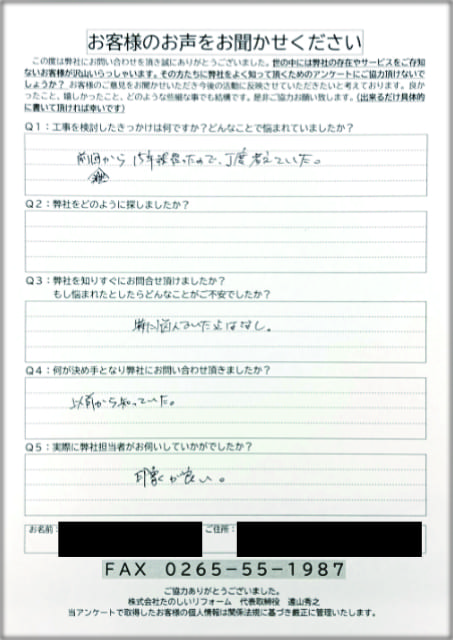 お客様のお声をお聞かせください
この度は弊社にお問い合わせを頂き誠にありがとうございました。世の中には弊社の存在やサービスをご存知
ないお客様が沢山いらっしゃいます。その方たちに弊社をよく知って頂くためのアンケートにご協力頂けないで
しょうか？お客様のご意見をお聞かせいただき今後の活動に反映させていただきたいと考えております。良か
ったこと、嬉しかったこと、どのような些細な事でも結構です。是非ご協力お願い致します。(出来るだけ具体的
に書いて頂ければ幸いです)
Q1：工事を検討したきっかけは何ですか？どんなことで悩まれていましたか？
前回から15年経過したので、丁度考えていた。
Q2：弊社をどのように探しましたか？
Q3：弊社を知りすぐにお問合せ頂けましたか？
もし悩まれたとしたらどんなことがご不安でしたか？
特に悩んでいた点はなし。
Q4：何が決め手となり弊社にお問い合わせ頂きましたか？
以前から知っていた。
Q5：実際に弊社担当者がお伺いしていかがでしたか？
印象が良い。
お名前 ご住所
FAX 0265-55-1987
ご協力ありがとうございました。
株式会社たのしいリフォーム 代表取締役 遠山秀之
当アンケートで取得したお客様の個人情報は関係法規に基づき厳正に管理いたします。